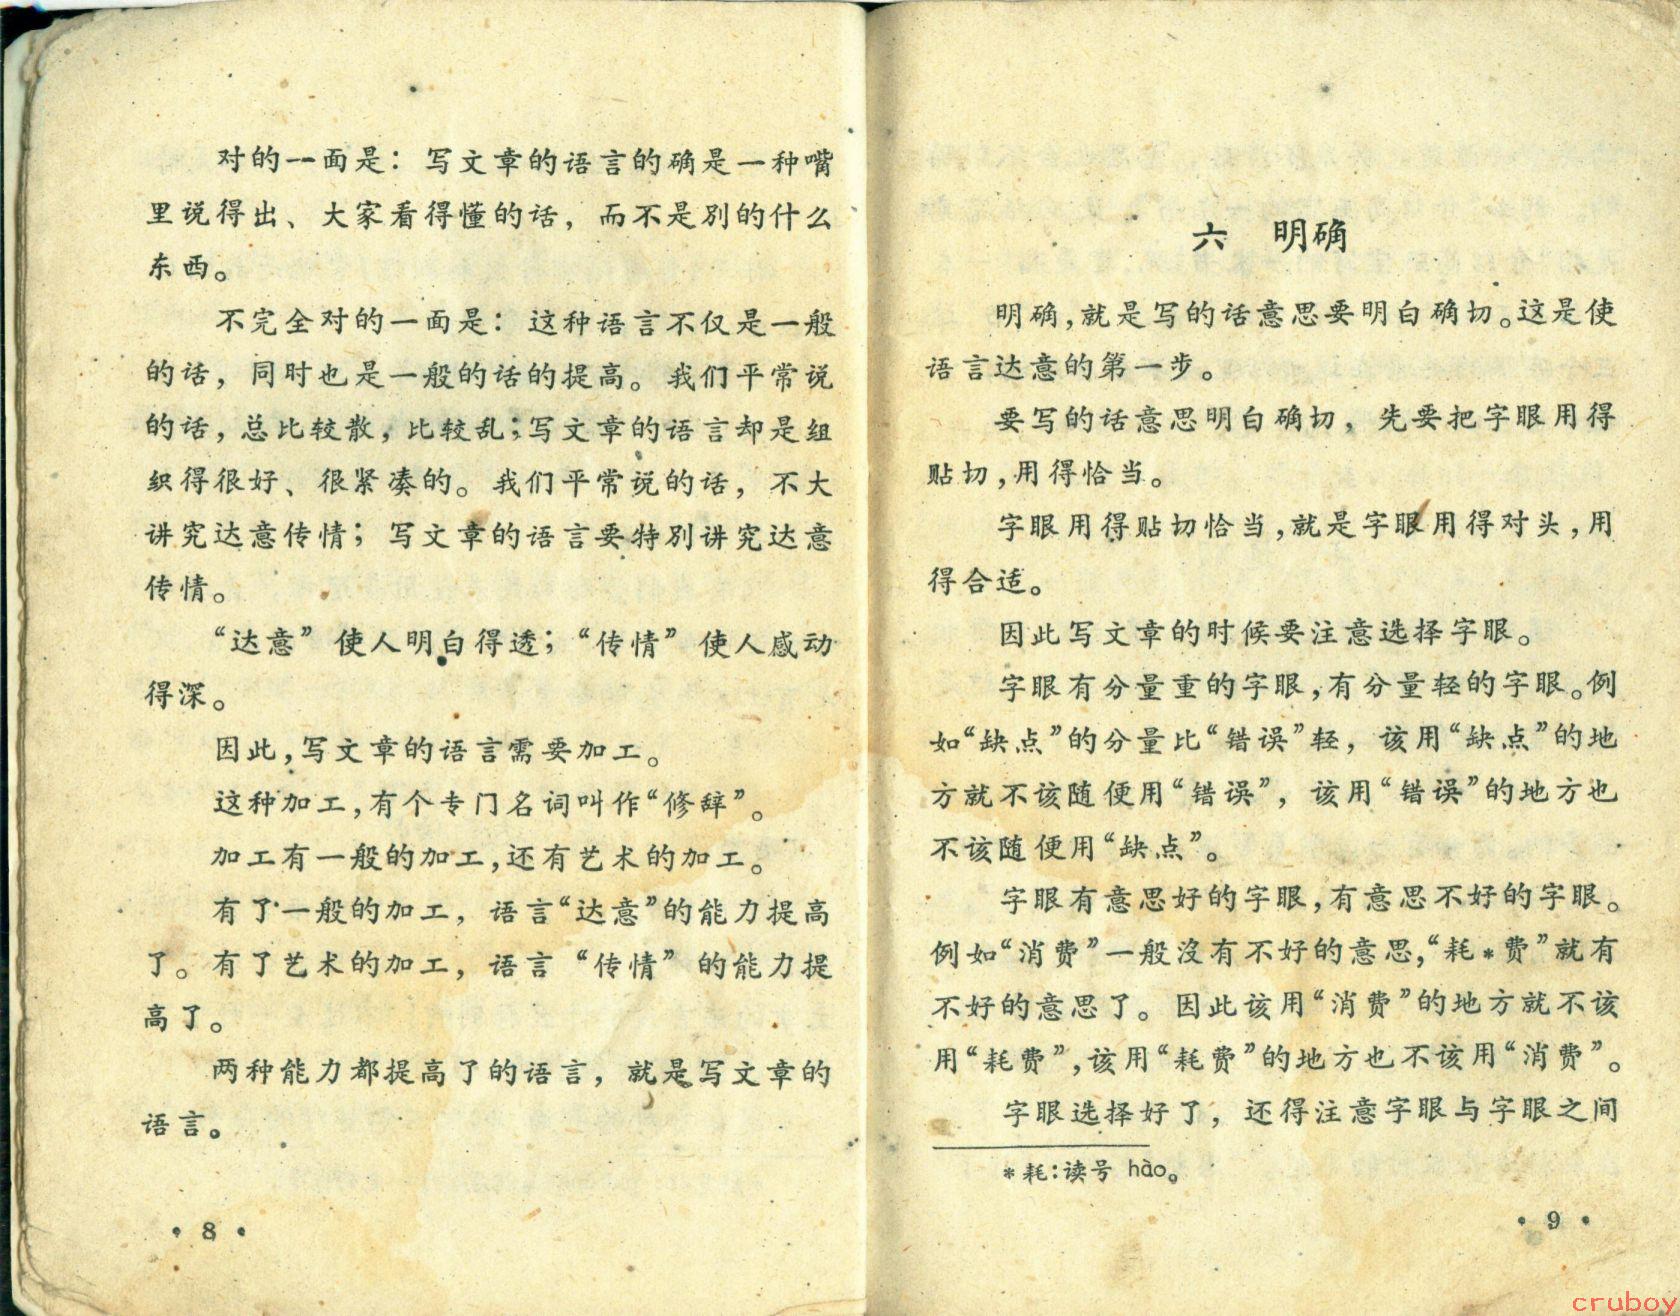 对的一面是：写文章的语言的确是一种嘴
里说得出、大家看得懂的话，而不是别的什么
东西。
不完全对的一面是：这种语言不仅是一般
的话，同时也是一般的话的提高。我们平常说
的话，总比较散，比较乱；写文章的语言却是组
织得很好、很紧凑的。我们平常说的话，不大
讲究达意传情；写文章的语言要特别讲究达意
传情。
“达意”使人明白得透；“传情”使人感动
得深。
因此，写文章的语言需要加工。
这种加工，有个专门名词叫作“修辞”。
加工有一般的加工，还有艺术的加工。
有了一般的加工，语言“达意”的能力提高
了。有了艺术的加工，语言“传情”的能力提
高了。
两种能力都提高了的语言，就是写文章的
语言。
• 8 •
六 明确
明确，就是写的话意思要明白确切。这是使
语言达意的第一步。
要写的话意思明白确切，先要把字眼用得
贴切，用得恰当。
字眼用得贴切恰当，就是字眼用得对头，用
得合适。
因此写文章的时候要注意选择字眼。
字眼有分量重的字眼，有分量轻的字眼。例
如“缺点”的分量比“错误”轻，该用“缺点”的地
方就不该随便用“错误”，该用“错误”的地方也
不该随便用“缺点”。
字眼有意思好的字眼，有意思不好的字眼。
例如“消费”一般没有不好的意思，“耗*费”就有
不好的意思了。因此该用“消费”的地方就不该
用“耗费”，该用“耗费”的地方也不该用“消费”。
字眼选择好了，还得注意字眼与字眼之间
*耗：读号 hào。
• 9 •
cruboy